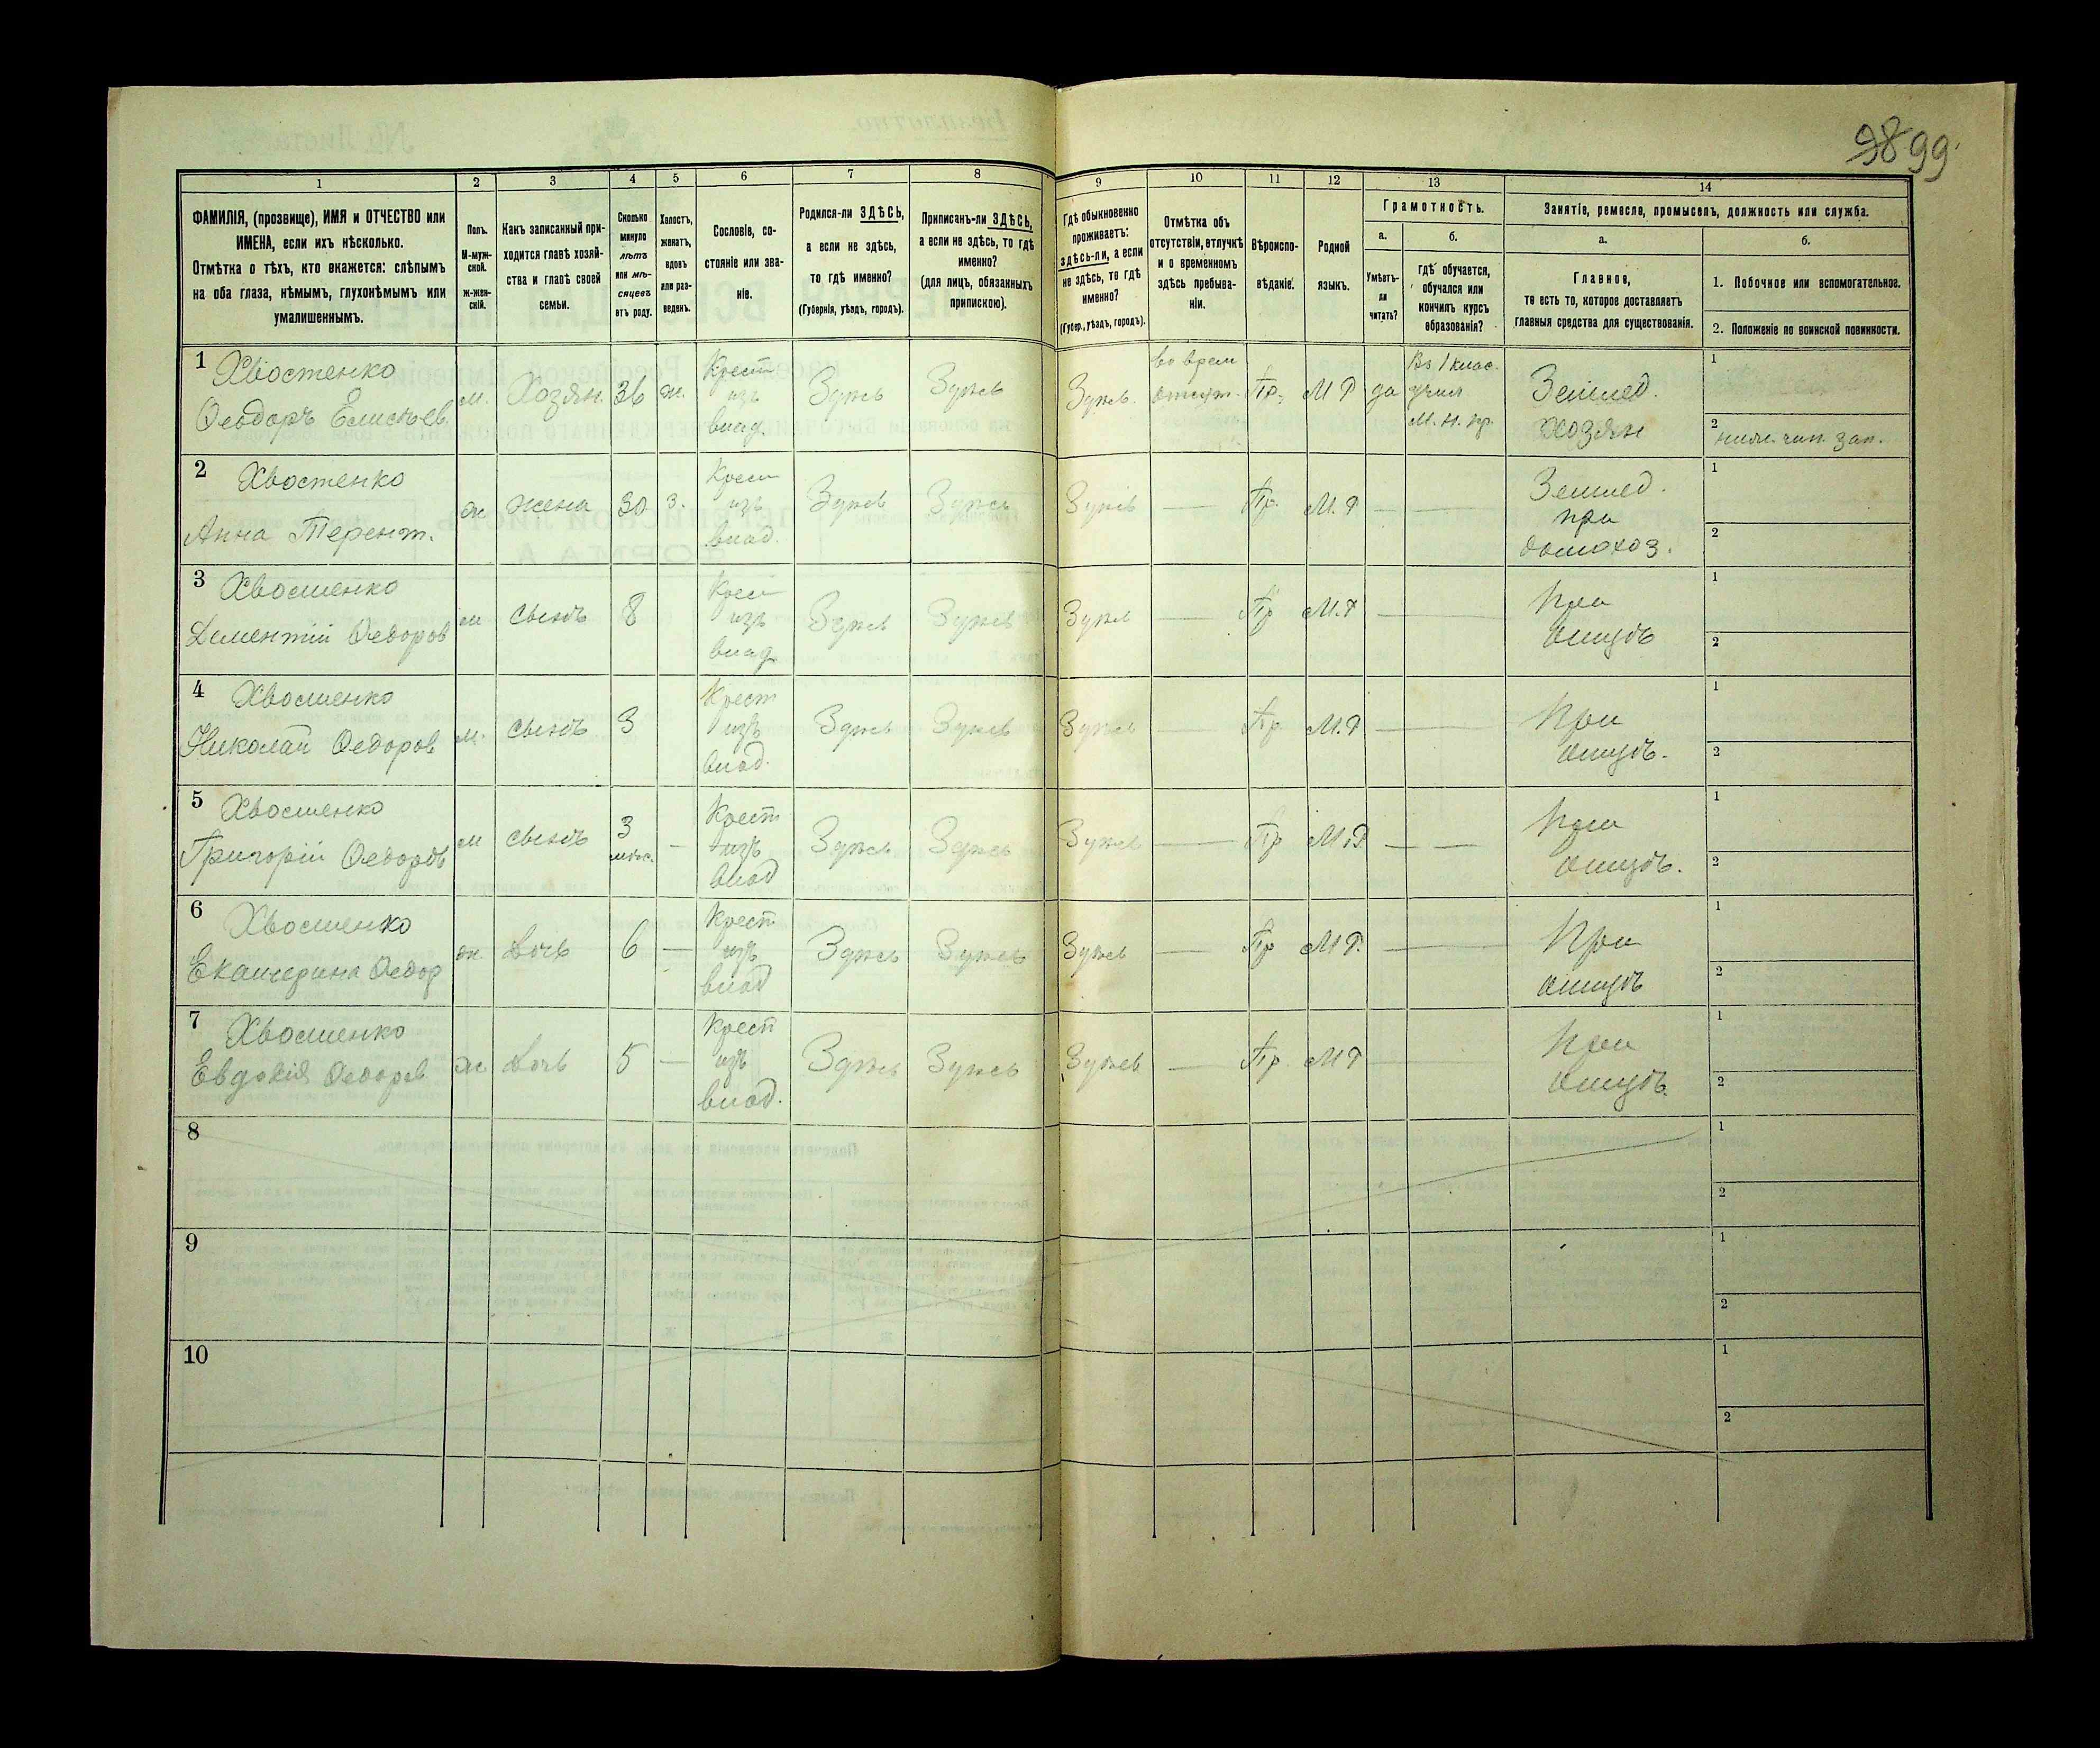 98 99
1
2
3
4
5
6
7
8
9
10
11
12
13
14
ФАМИЛІЯ, (прозвище), ИМЯ и ОТЧЕСТВО или
ИМЕНА, если ихъ нѣсколько.
Отмѣтка о тѣхъ, кто окажется: слѣпымъ
на оба глаза, нѣмымъ, глухонѣмымъ или
умалишеннымъ.
Полъ.
М-муж-
ской.
ж-жен-
скій.
Какъ записанный при-
ходится главѣ хозяй-
ства и главѣ своей
семьи.
Сколько
минуло
лѣтъ
или мѣ-
сяцевъ
отъ роду.
Холостъ,
женатъ,
вдовъ
или раз-
веденъ.
Сословіе, со-
стояніе или зва-
ніе.
Родился-ли ЗДѢСЬ,
а если не здѣсь,
то гдѣ именно?
(Губернія, уѣздъ, городъ).
Приписанъ-ли ЗДѢСЬ,
а если не здѣсь, то гдѣ
именно?
(для лицъ, обязанныхъ
припискою).
Гдѣ обыкновенно
проживаетъ:
здѣсь-ли, а если
не здѣсь, то гдѣ
именно?
(Губер., уѣздъ, городъ).
Отмѣтка объ
отсутствіи, отлучкѣ
и о временномъ
здѣсь пребыва-
ніи.
Вѣроиспо-
вѣданіе.
Родной
языкъ.
Грамотность.
а.
Умѣетъ-
ли
читать?
б.
гдѣ обучается,
обучался или
кончилъ курсъ
образованія?
Занятіе, ремесло, промыселъ, должность или служба.
а.
Главное,
то есть то, которое доставляетъ
главныя средства для существованія.
б.
1. Побочное или вспомогательное.
2. Положеніе по воинской повинности.
1 Хвостенко
Ѳеодоръ Елисѣев.
м.
Хозяин.
36
ж.
Крест
изъ
влад.
Здѣсь
Здѣсь
Здѣсь.
во врем
отсут.
Пр.
М Р
да
Въ 1 клас.
учил
М. Н. пр.
Землед.
хозяин
1
2
ниж. чин. зап.
2 Хвостенко
Анна Терент.
ж
жена
30
з.
Крест
изъ
влад.
Здѣсь
Здѣсь
Здѣсь
—
Пр.
М. Р
— —
Землед.
при
домохоз.
1
2
3 Хвостенко
Дементій Ѳедоров
м
сынъ
8
Крест
изъ
влад
Здѣсь
Здѣсь
Здѣсь
—
Пр
М. Р
—
При
отцѣ
1
2
4 Хвостенко
Николай Ѳедоров
м.
сынъ
3
Крест
изъ
влад.
Здѣсь
Здѣсь
Здѣсь
—
Пр
М. Р
—
При
отцѣ.
1
2
5 Хвостенко
Григорій Ѳедоровъ
м
сынъ
3
мѣс.
—
Крест
изъ
влад
Здѣсь
Здѣсь
Здѣсь
—
Пр
М. Р.
— —
При
отцѣ.
1
2
6 Хвостенко
Екатерина Ѳедор
ж.
Дочь
6
—
Крест
изъ
влад
Здѣсь
Здѣсь
Здѣсь
—
Пр
М Р.
—
При
отцѣ
1
2
7 Хвостенко
Евдокія Ѳедоров
ж
Дочь
5
—
Крест
изъ
влад.
Здѣсь
Здѣсь
Здѣсь
—
Пр.
М Р
—
При
отцѣ.
1
2
8
1
2
9
1
2
10
1
2